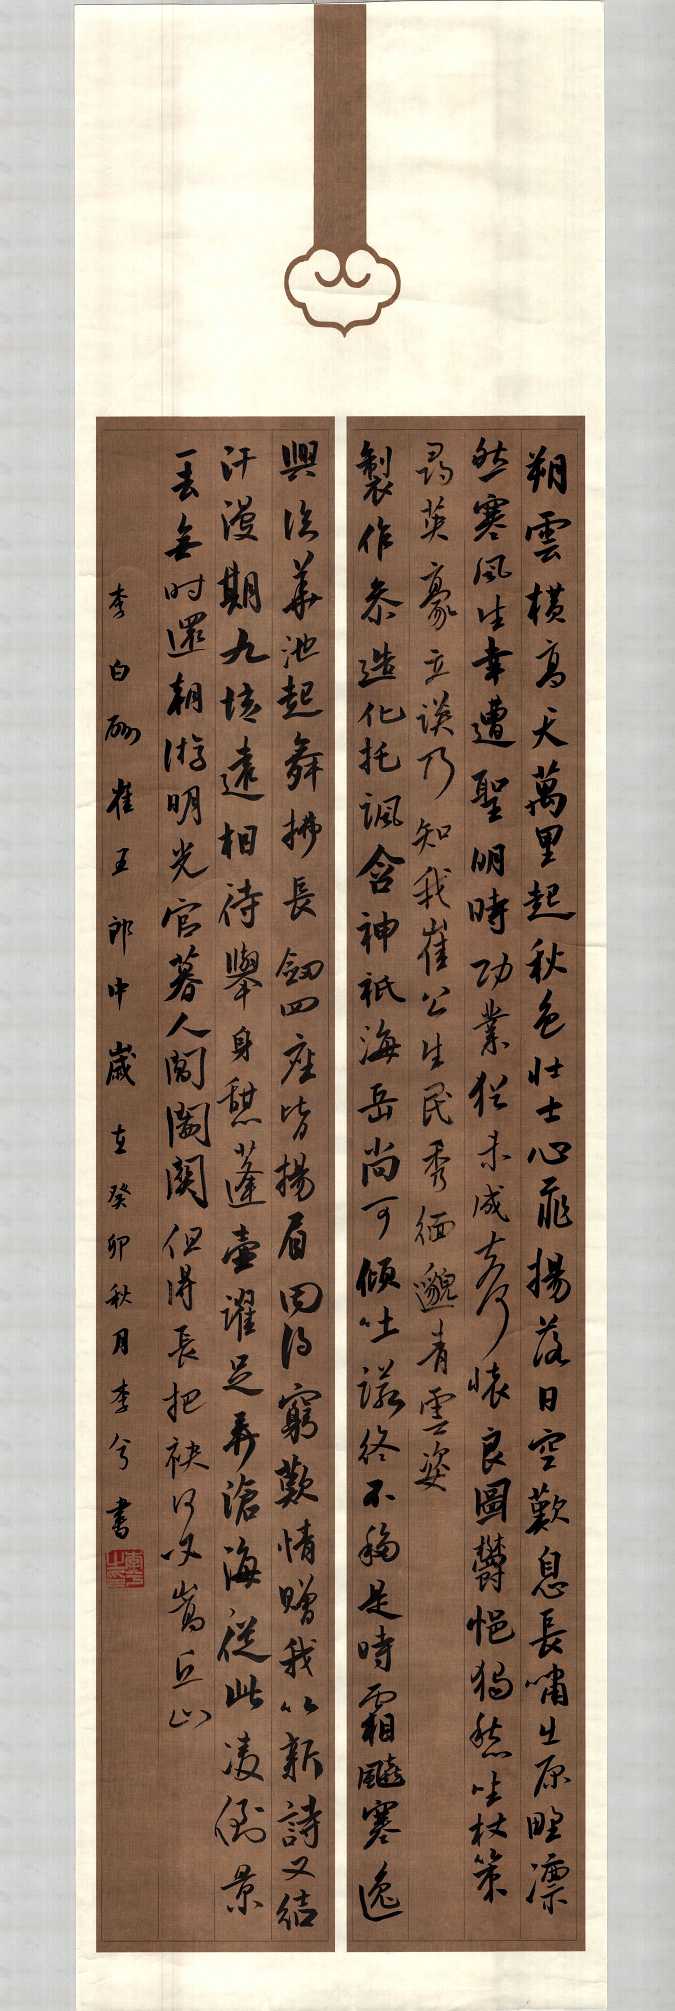 朔雲橫高天萬里起秋色壯士心飛揚落日空歎息長嘯出原野凛
然寒風生幸遭聖明時功業猶未成奈何懷良圖鬱悒獨愁坐杖策
尋英豪立談乃知我崔公生民秀緬邈青雲姿
製作參造化托諷含神祇海岳尚可傾吐諾終不移是時霜飈寒逸
興臨華池起舞拂長劔四座皆揚眉因得窮歡情贈我以新詩又結
汗漫期九垓遠相待舉身憩蓬壺濯足弄滄海從此凌倒景
一去無时還朝游明光宮暮入閶闔関但得長把袂何必嵩丘山
李白酬崔五郎中歲在癸卯秋月李兮書